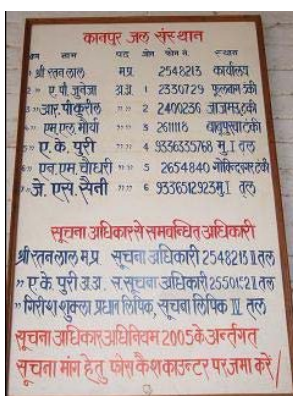 कानपुर जल संस्थान
क्रम नाम पद जोन फोन नं. स्थान
1 श्री रतन लाल म.प्र. 2548213 कार्यालय
2 " ए. पी. जुनेजा अ.अ. 1 2330729 फूलबाग टंकी
3 " आर. पी. कुरील " " 2 2400236 जाजमऊ टंकी
4 " एम. एल. मौर्या " " 3 261118 बाबूपुरवा टंकी
5 " ए. के. पुरी " " 4 9336335768 मु. I तल
6 " एन. एम. चौधरी " " 5 2654840 गोविन्दनगर टंकी
" जे. एस. सैनी " " 6 9336512923 मु. I तल
सूचना अधिकार से सम्बन्धित अधिकारी
श्री रतन लाल म.प्र. सूचना अधिकारी 2548213 II तल
" ए. के. पुरी अ.अ. स. सूचना अधिकारी 2550192 I तल
" गिरीश शुक्ला प्रधान लिपिक, सूचना लिपिक IV तल
सूचना अधिकार अधिनियम 2005 के अर्न्तगत
सूचना मांग हेतु फीस कैश काउन्टर पर जमा करें /